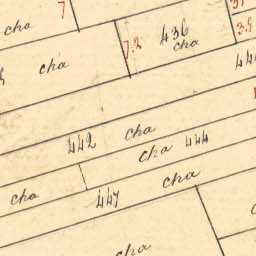 cha
7
436
cha
7.2
3.5
cha
442
cha
cha
444
cha
447
cha
cha